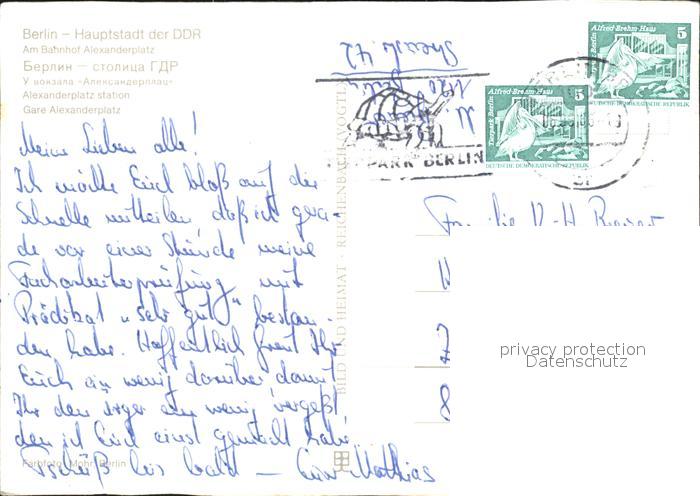 Berlin – Hauptstadt der DDR
Am Bahnhof Alexanderplatz
Берлин — столица ГДР
У вокзала «Александерплац»
Alexanderplatz station
Gare Alexanderplatz
Meine Lieben alle!
Ich möchte Euch bloß auf die
Schnelle mitteilen daß ich gera-
de vor einer Stunde meine
Facharbeiterprüfung mit
Prädikat „sehr gut" bestan-
den habe. Hoffentlich freut Ihr
Euch ein wenig darüber damit
Ihr den Ärger ein wenig vergeßt
den ich Euch einst gemacht habe.
Tschüß bis bald — Euer Mathias
Farbfoto: Mohr, Berlin
BILD UND HEIMAT · REICHENBACH (VOGTL
TIERPARK BERLIN
Alfred-Brehm-Haus
5
Tierpark Berlin
DEUTSCHE DEMOKRATISCHE REPUBLIK
Alfred-Brehm-Haus
5
Tierpark Berlin
DEUTSCHE DEMOKRATISCHE REPUBLIK
8
privacy protection
Datenschutz